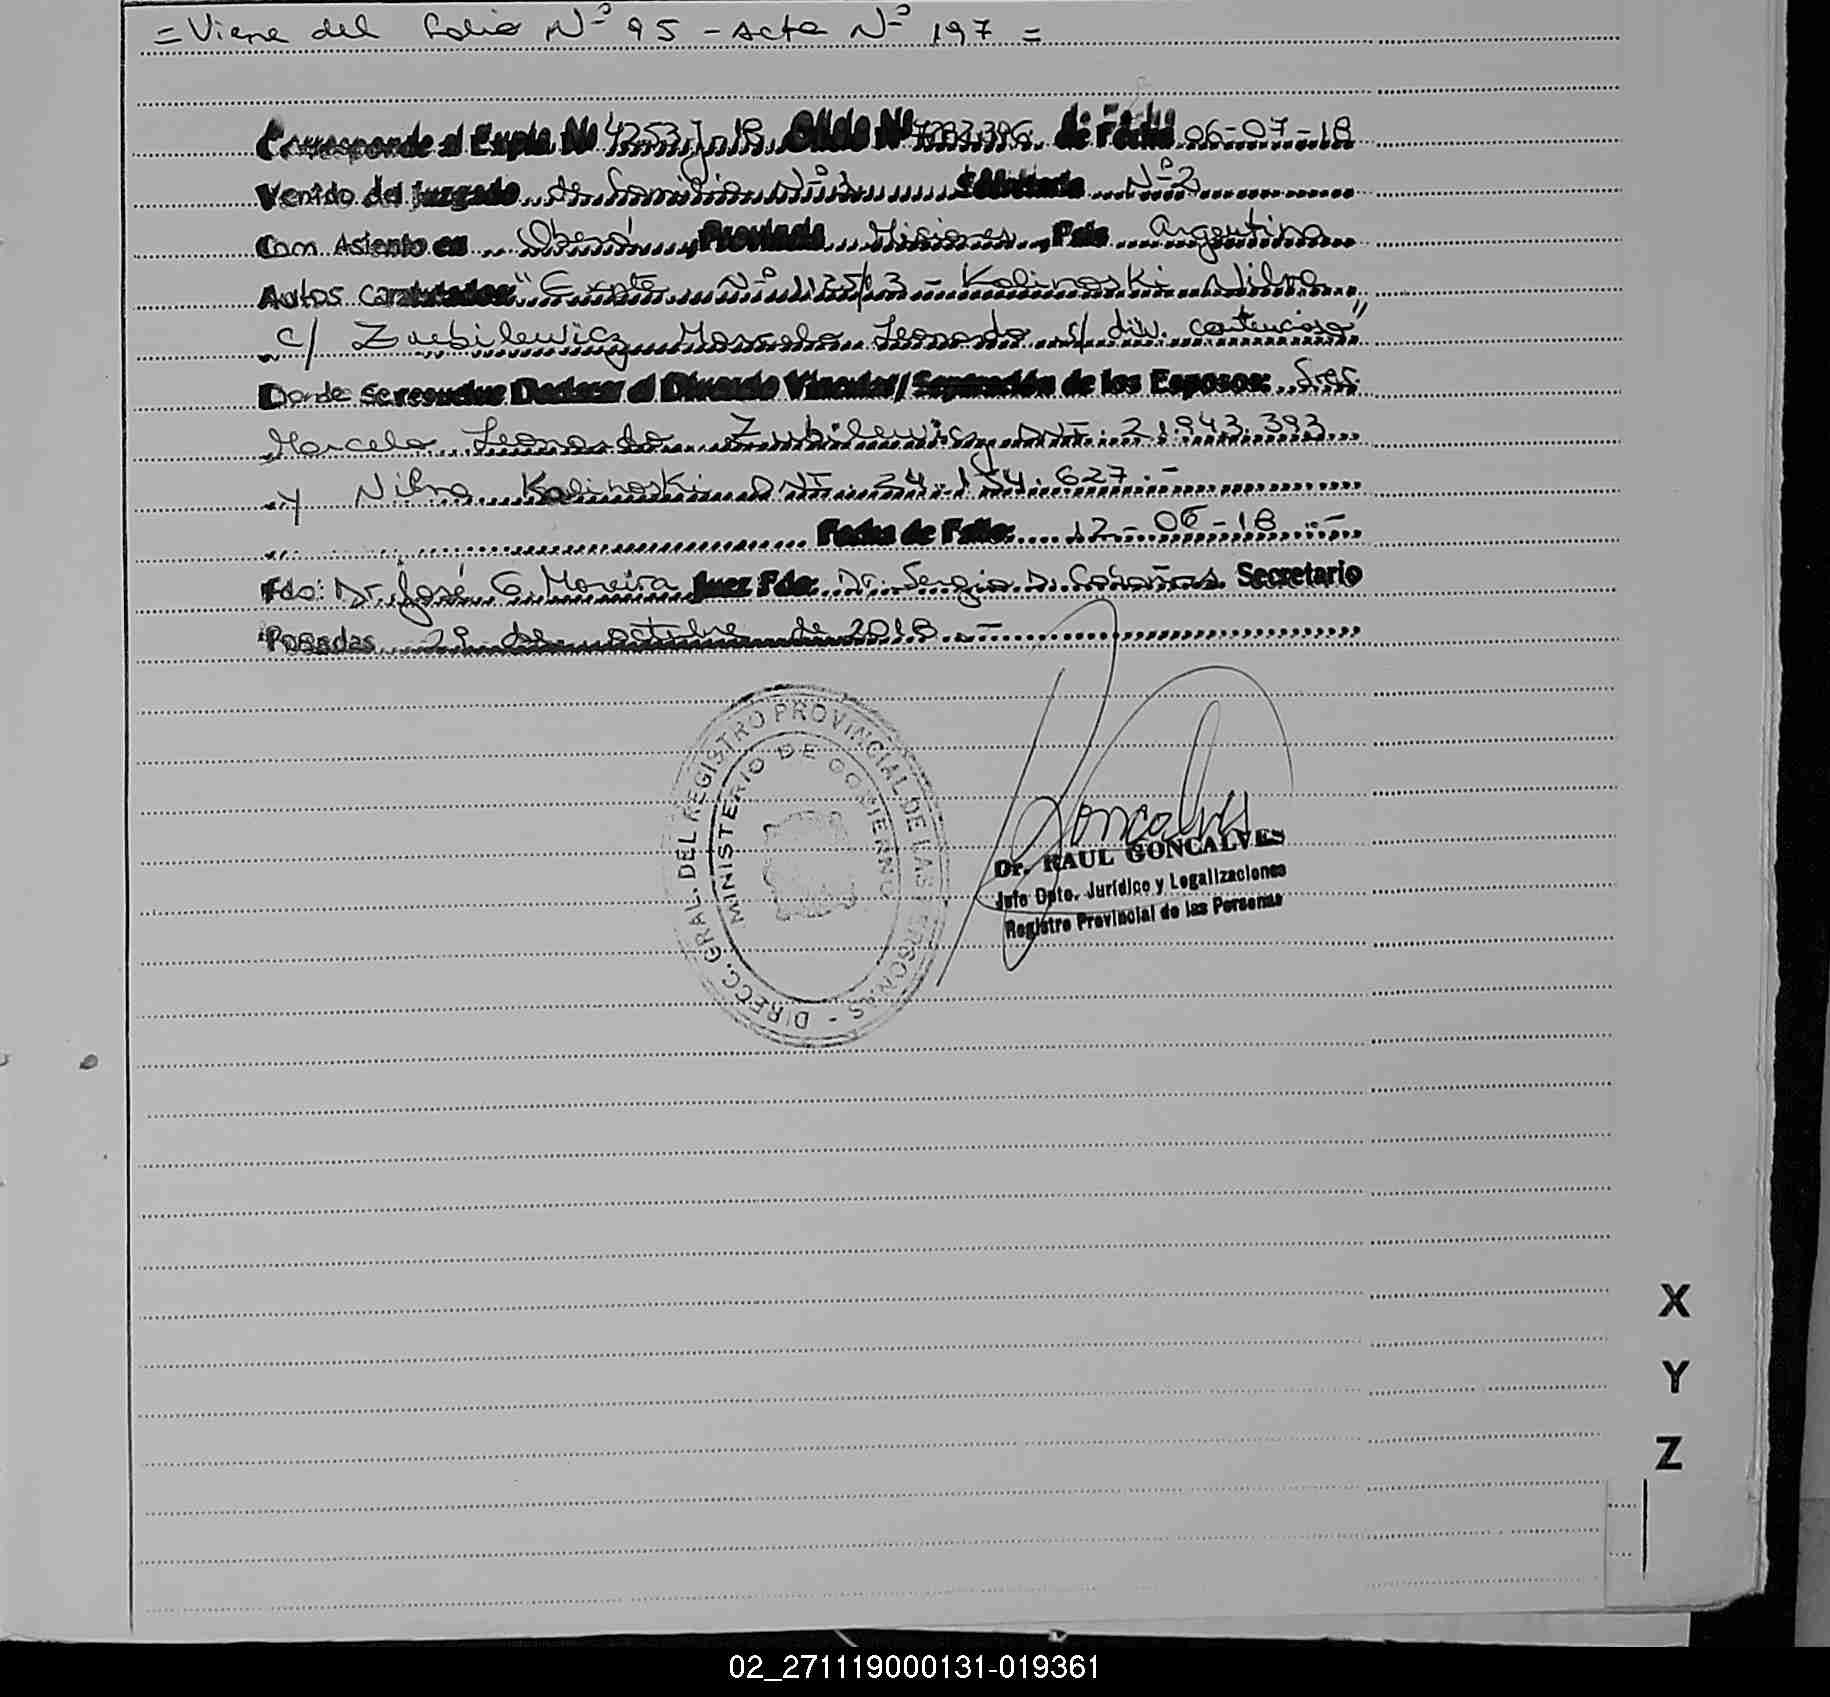 = Viene del folio Nº 95 - Acta Nº 197 =
Corresponde al Expte. Nº 4253 J-18 Oficio Nº de Fecha 06-07-18
Venido del Juzgado de Familia Nº 1 Secretaria Nº 2
Com Asiento en Oberá, Provincia Misiones, Pais Argentina
Autos Caratulados: "Expte Nº - Kalinoski Nilva
c/ Zubilewicz Marcelo Leonardo s/ div. contencioso"
Donde se resuelve Declarar el Divorcio Vincular/Separación de los Esposos: Sres.
Marcelo Leonardo Zubilewicz DNI. 21.943.393
y Nilva Kalinoski DNI. 24.154.627.-
Fecha de Fallo: 12-06-18.-
Fdo: Dr. José G. Moreira Juez Fdo: Dr. Sergio D. Secretario
Posadas 29 de octubre de 2018.-
DIRECC. GRAL. DEL REGISTRO PROVINCIAL DE LAS PERSONAS -
MINISTERIO DE GOBIERNO
Goncalves
Dr. RAUL GONCALVES
Jefe Dpto. Jurídico y Legalizaciones
Registro Provincial de las Personas
X
Y
Z
02_271119000131-019361